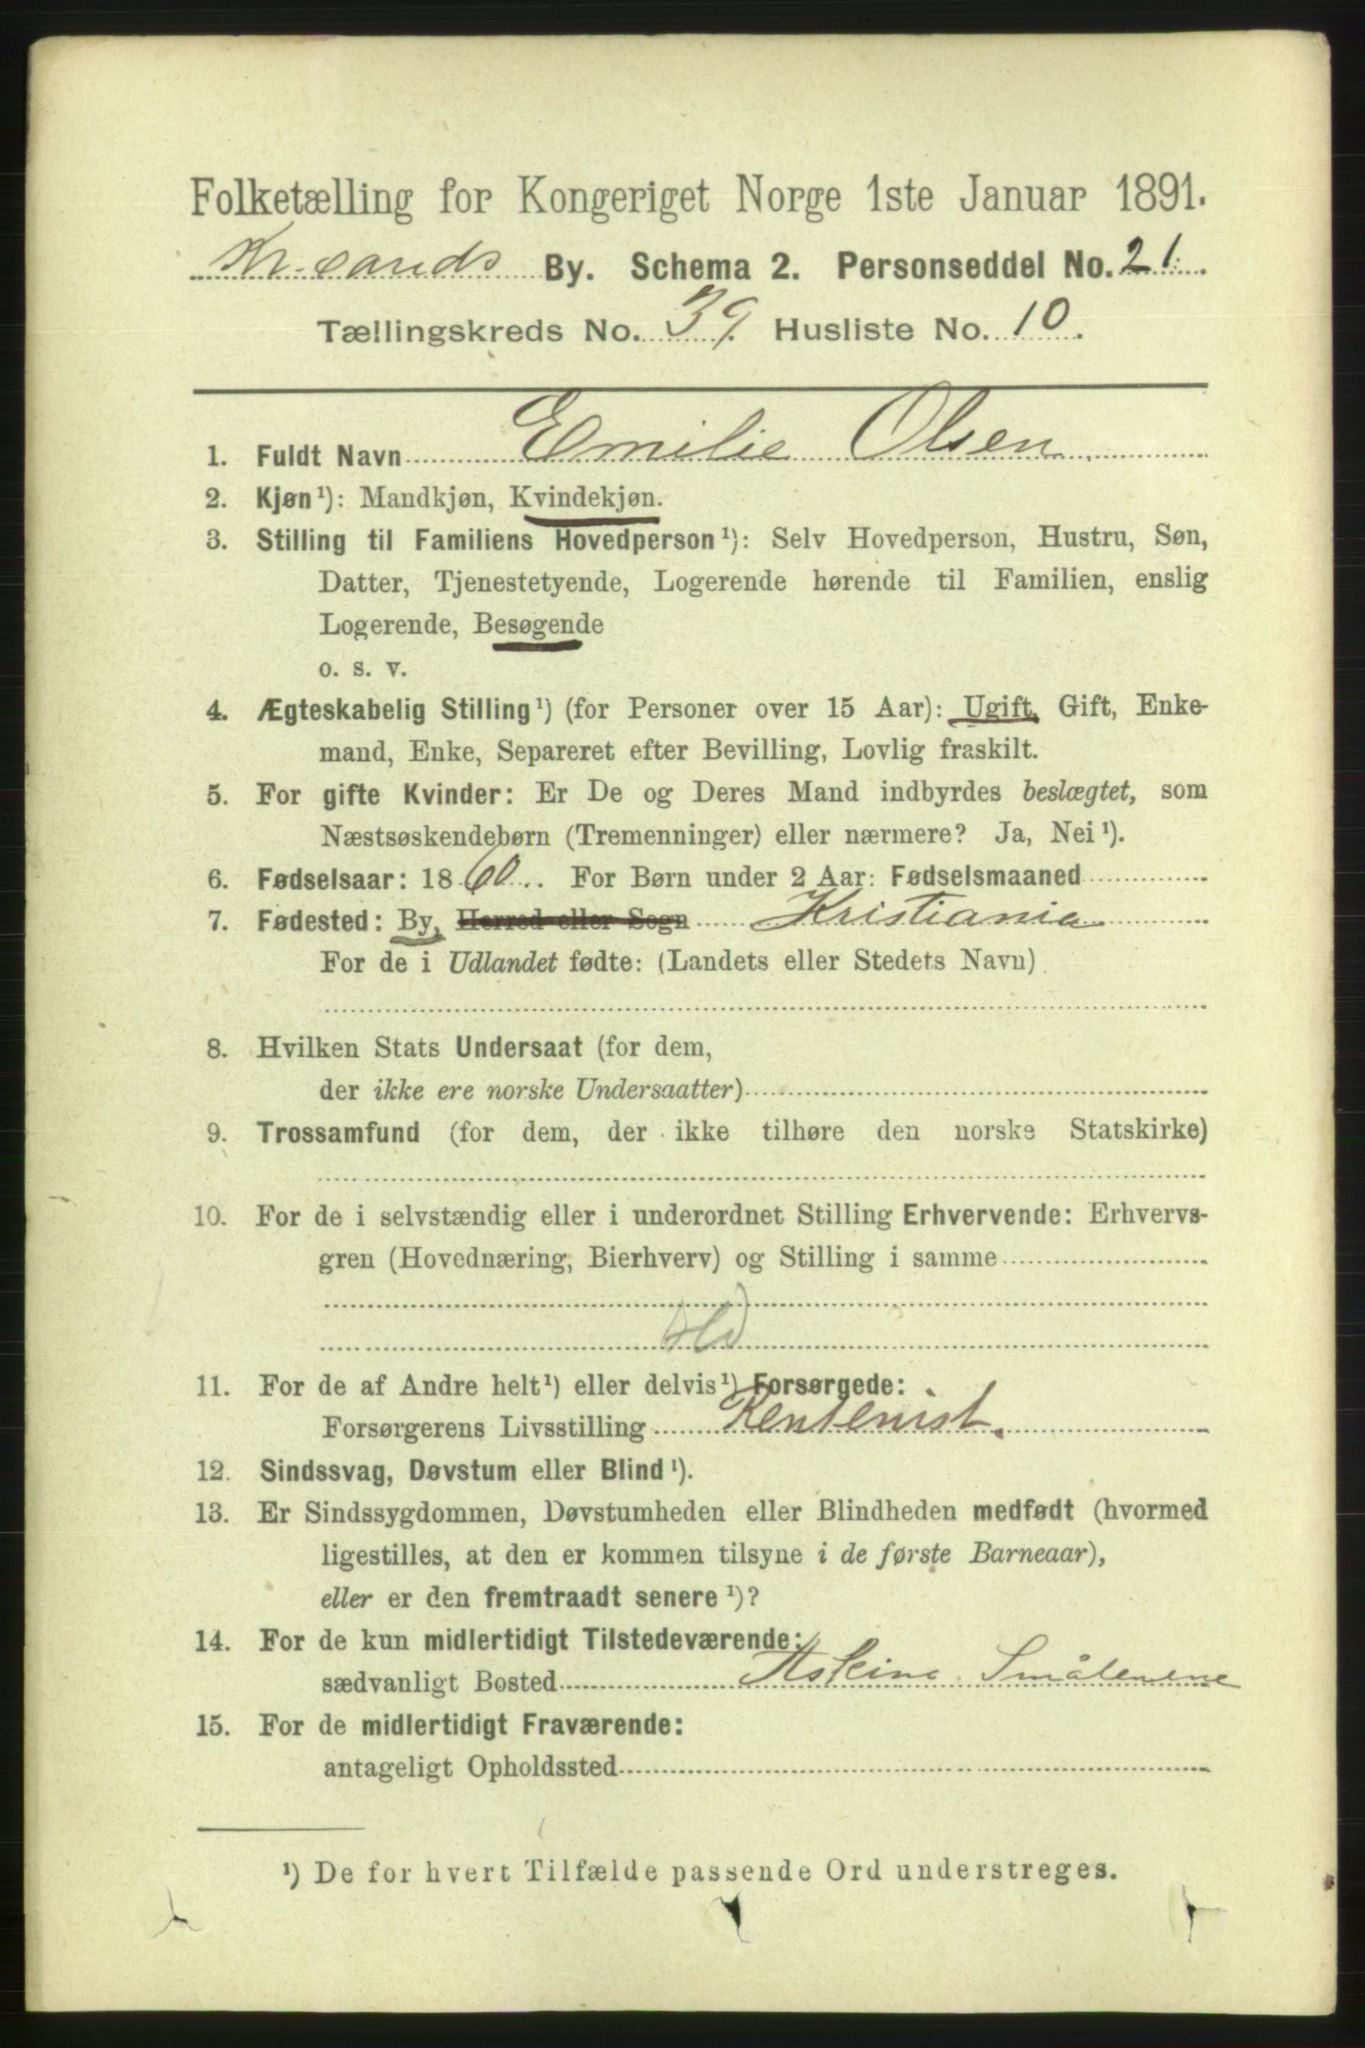 Folketælling for Kongeriget Norge 1ste Januar 1891.
Kr.sands By. Schema 2. Personseddel No. 21.
Tællingskreds No. 39. Husliste No. 10.
1. Fuldt Navn Emilie Olsen.
2. Kjøn¹): Mandkjøn, Kvindekjøn.
3. Stilling til Familiens Hovedperson¹): Selv Hovedperson, Hustru, Søn,
Datter, Tjenestetyende, Logerende hørende til Familien, enslig
Logerende, Besøgende
o. s. v.
4. Ægteskabelig Stilling¹) (for Personer over 15 Aar): Ugift, Gift, Enke-
mand, Enke, Separeret efter Bevilling, Lovlig fraskilt.
5. For gifte Kvinder: Er De og Deres Mand indbyrdes beslægtet, som
Næstsøskendebørn (Tremenninger) eller nærmere? Ja, Nei¹).
6. Fødselsaar: 1860. For Børn under 2 Aar: Fødselsmaaned
7. Fødested: By, Herred eller Sogn Kristiania
For de i Udlandet fødte: (Landets eller Stedets Navn)
8. Hvilken Stats Undersaat (for dem,
der ikke ere norske Undersaatter)
9. Trossamfund (for dem, der ikke tilhøre den norske Statskirke)
10. For de i selvstændig eller i underordnet Stilling Erhvervende: Erhvervs-
gren (Hovednæring, Bierhverv) og Stilling i samme
11. For de af Andre helt¹) eller delvis¹) Forsørgede:
Forsørgerens Livsstilling Rentenist.
12. Sindssvag, Døvstum eller Blind¹).
13. Er Sindssygdommen, Døvstumheden eller Blindheden medfødt (hvormed
ligestilles, at den er kommen tilsyne i de første Barneaar),
eller er den fremtraadt senere¹)?
14. For de kun midlertidigt Tilstedeværende:
sædvanligt Bosted Askim Smålenene
15. For de midlertidigt Fraværende:
antageligt Opholdssted
¹) De for hvert Tilfælde passende Ord understreges.